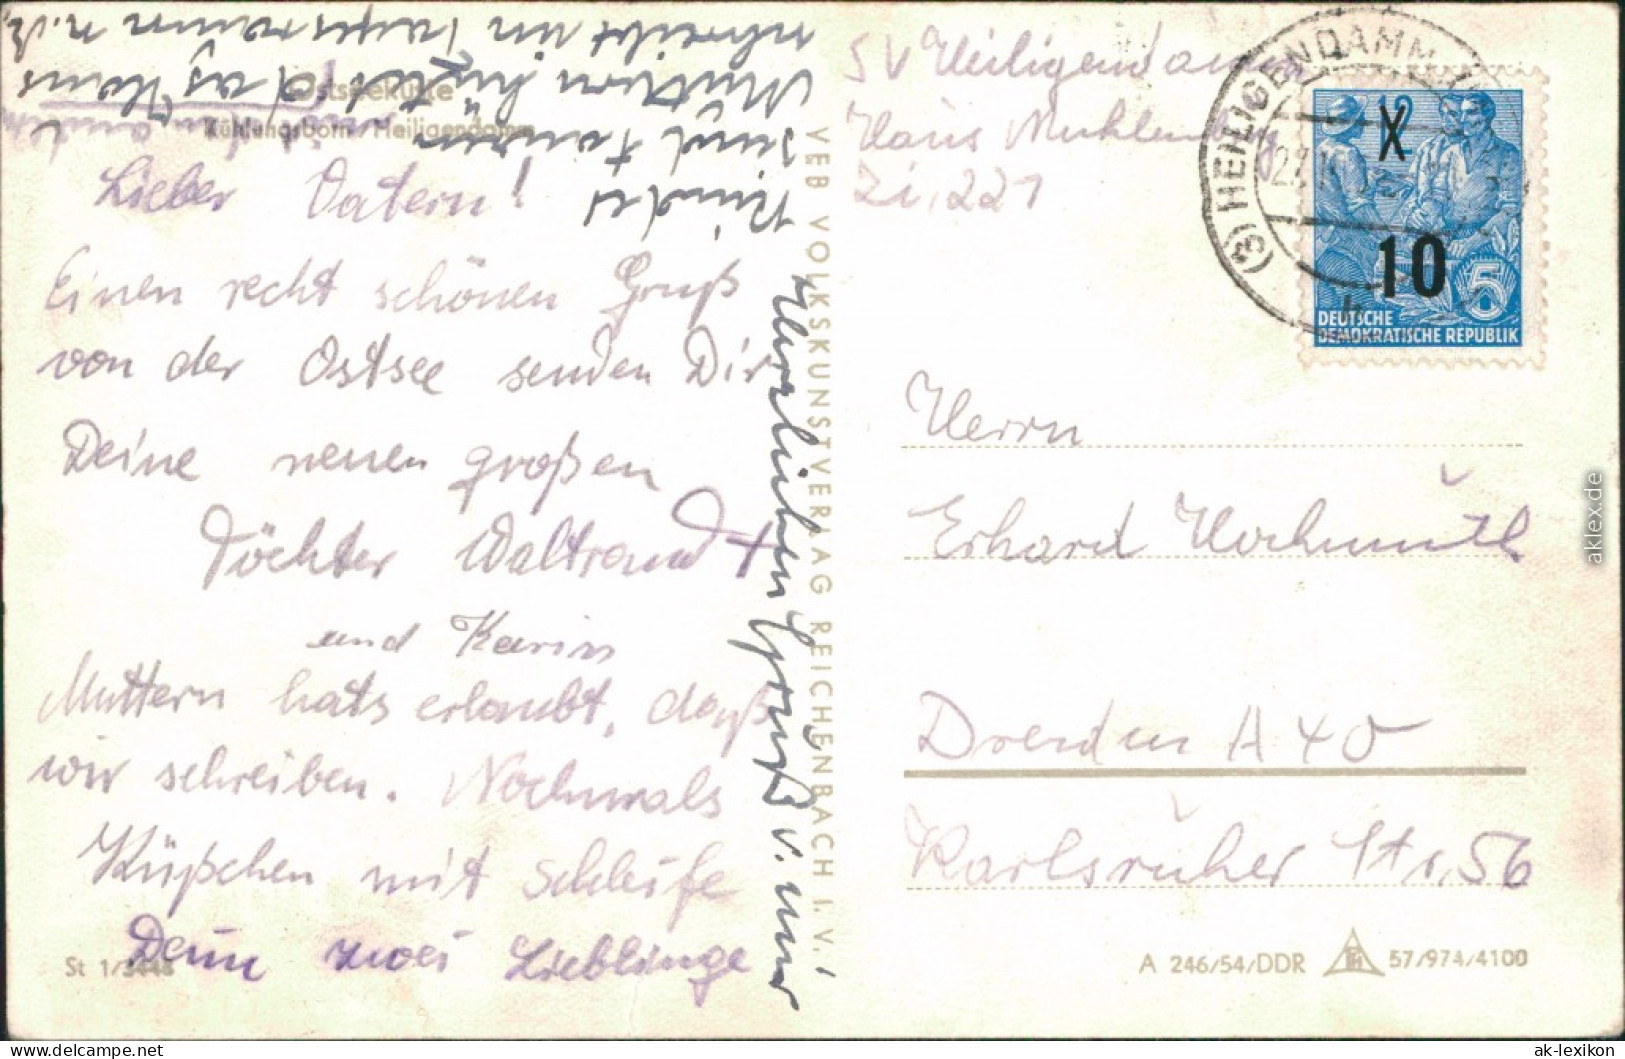 Ostseeküste
Kühlungsborn Heiligendamm
Lieber Vatern!
Einen recht schönen Gruß
von der Ostsee senden Dir
Deine neuen großen
Töchter Waltraudt
und Karin
Muttern hats erlaubt, daß
wir schreiben. Nochmals
Küßchen mit Schleife
Dein zwei Lieblinge
St 1/3448
Herzlichen Gruß v. mir
schreibt im
Muttern
sind
Kinder
VEB VOLKSKUNSTVERLAG REICHENBACH I. V.
SV Heiligendamm
Haus Mecklenburg
Zi. 221
(3) HEILIGENDAMM
12
10
5
DEUTSCHE
DEMOKRATISCHE REPUBLIK
Herrn
Erhard Hochmuth
Dresden A 40
Karlsruher Str. 56
A 246/54/DDR 57/974/4100
aklex.de
www.delcampe.net
ak-lexikon